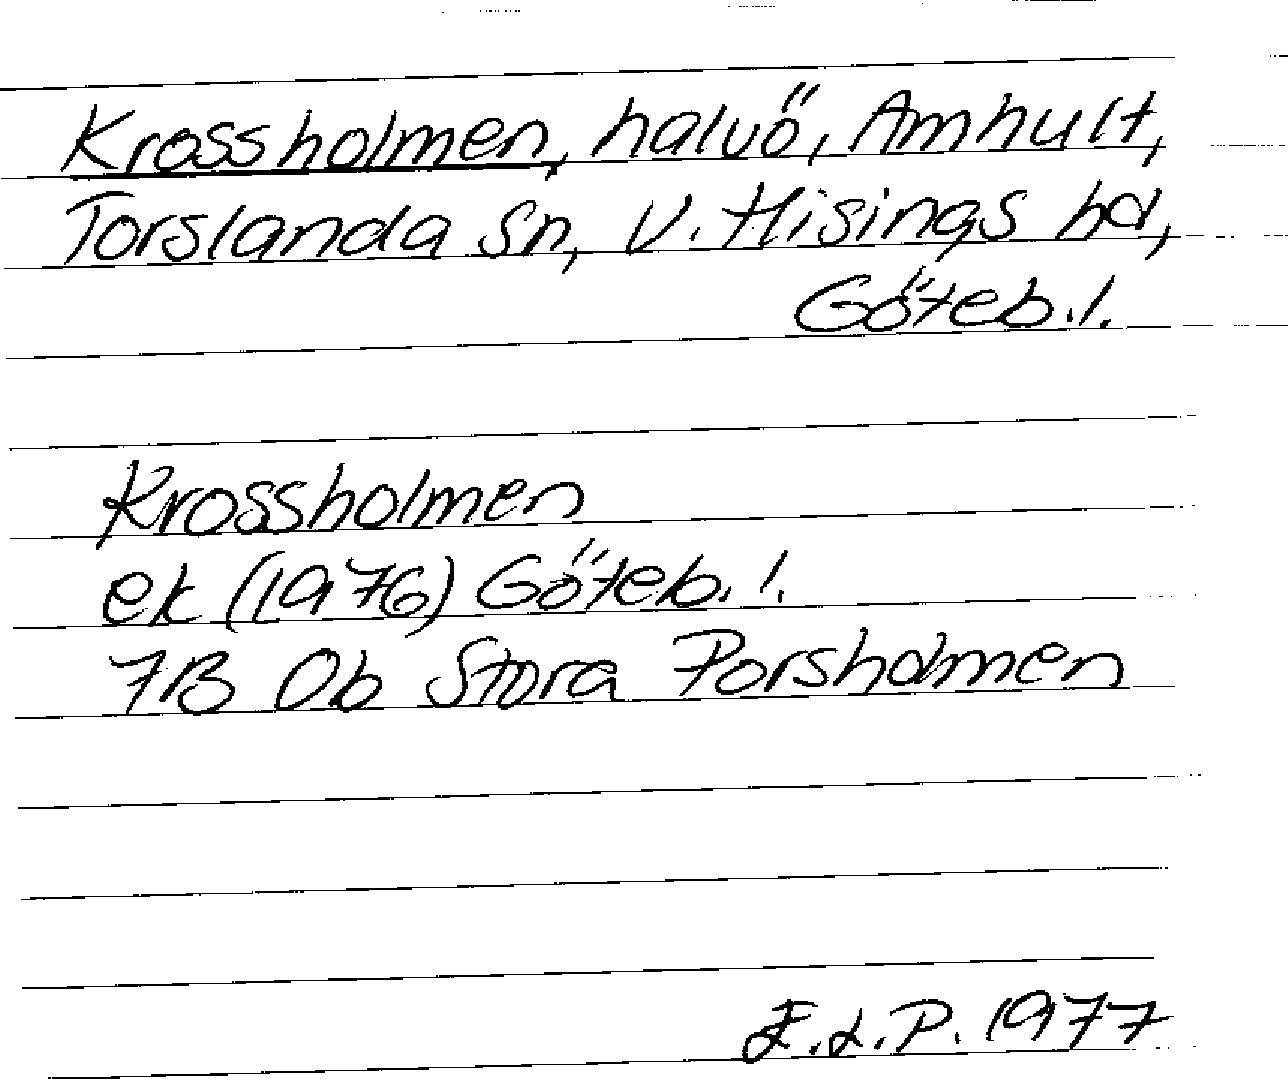 Krossholmen, halvö, Amhult,
Torslanda sn, V. Hisings hd,
Göteb.l.
Krossholmen
ek (1976) Göteb.l.
7B 0b Stora Porsholmen
E.L.P. 1977